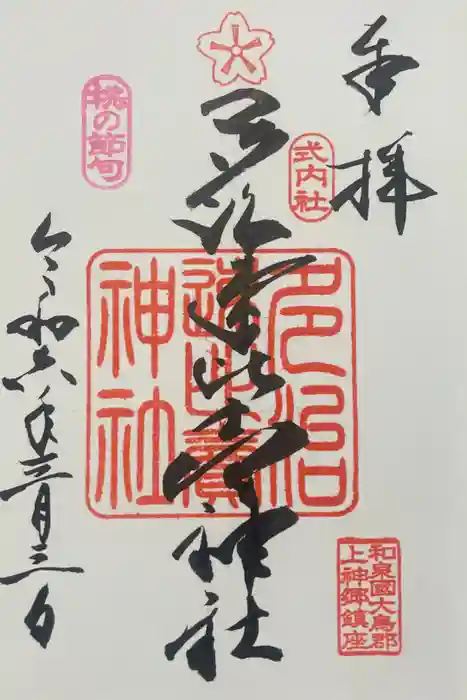 奉拝
式内社
多治速比売神社
多治
速比賣
神社
和泉國大鳥郡
上神郷鎮座
桃の節句
令和六年三月三日